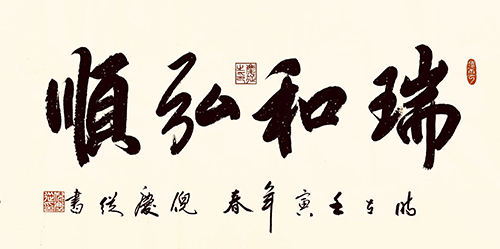 瑞和弘順
時在壬寅年春 倪慶從書